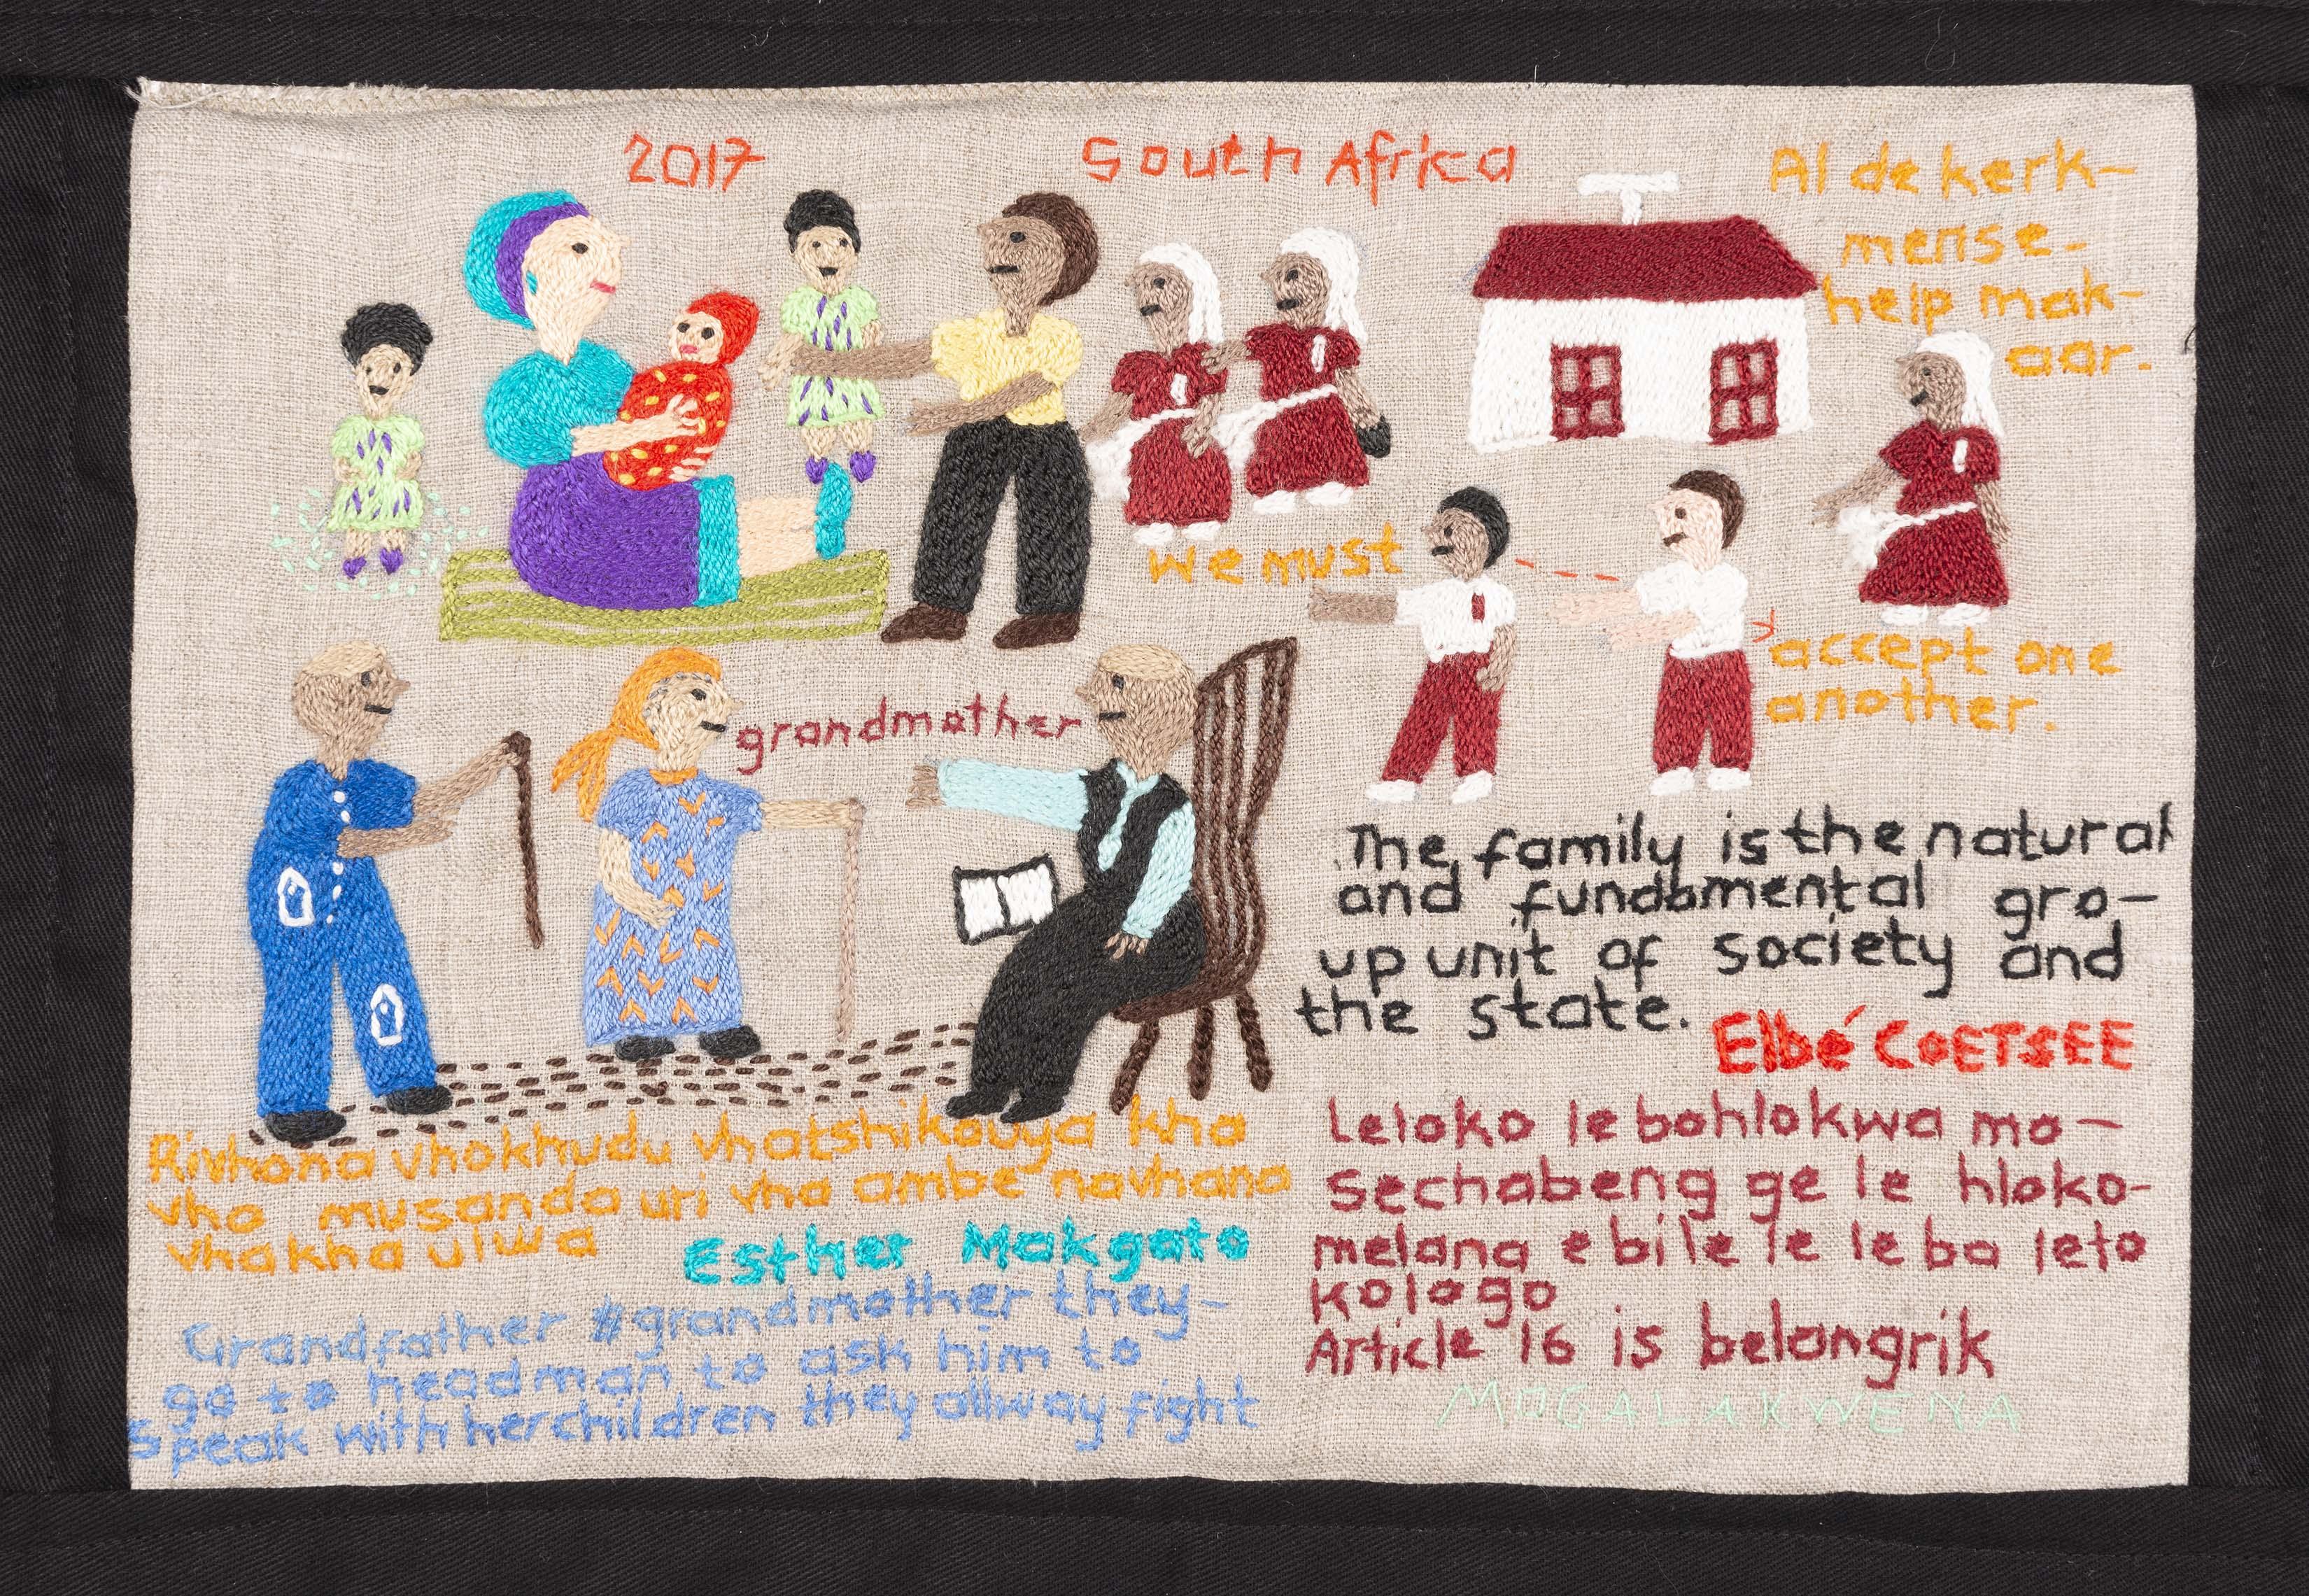 2017
South Africa
Al de kerk-
mense-
help mak-
aar.
we must
accept one
another.
grandmother
The family is the natural
and fundamental gro-
up unit of society and
the state.
Elbé COETSEE
Rivhona vhokhudu vhatshikovya kha
vho musanda uri vha ambe navhana
vhakha ulwa
Esther Makgato
Grandfather #grandmother they-
go to headman to ask him to
speak with her children they allway fight
Leloko le bohlokwa mo-
Sechabeng ge le hloko-
melana e bile le le ba leto
kologo
Article 16 is belangrik
MOGALAKWENA